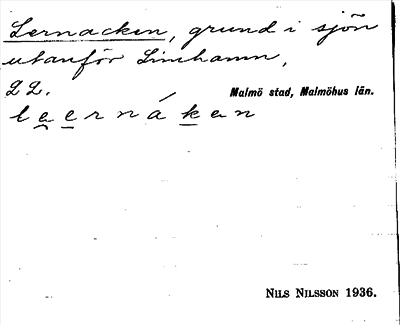 Lernacken, grund i sjön
utanför Limhamn,
22. Malmö stad, Malmöhus län.
leernáken
NILS NILSSON 1936.